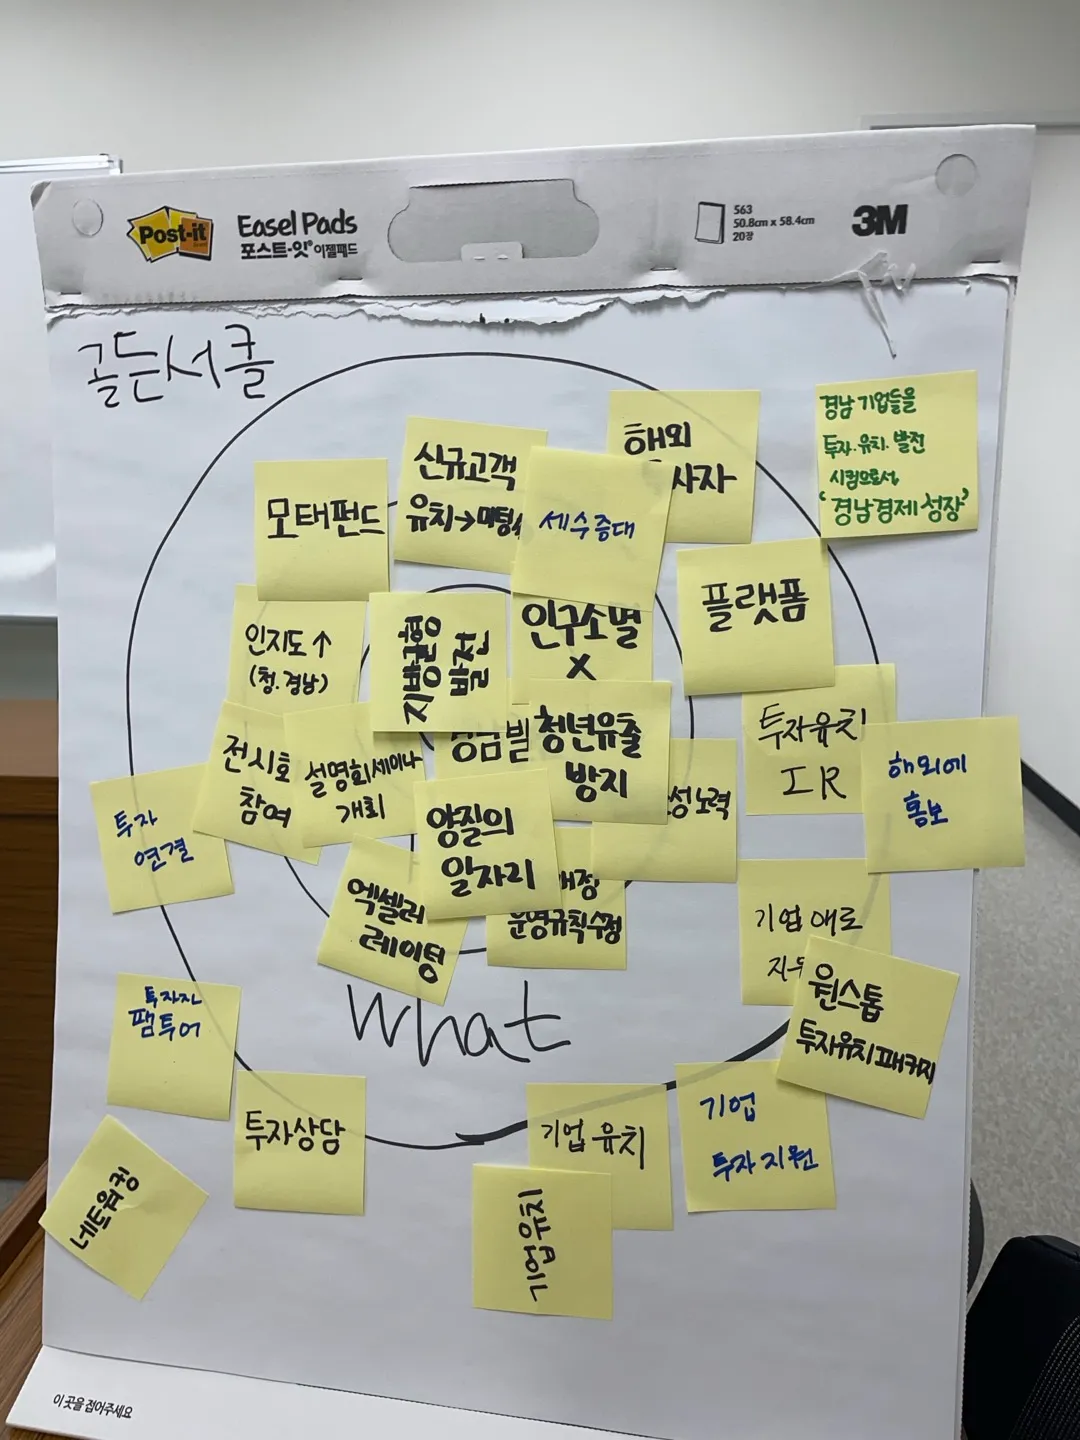 Post-it
Easel Pads
포스트-잇 이젤패드
563
50.8cm x 58.4cm
20장
3M
골든서클
경남 기업들을
투자.유치.발전
시킴으로서,
'경남경제 성장'
해외
사자
신규고객
유치→미팅
세수증대
모태펀드
플랫폼
인구소멸
X
지방균형
발전
인지도↑
(청.경남)
청년유출
방지
경남빌
투자유치
IR
해외에
홍보
전시회
참여
설명회세미나
개최
성노력
투자
연결
양질의
일자리
개정
운영규칙수정
엑셀러
레이팅
기업애로
원스톱
투자유치패키지
What
투자자
팸투어
투자상담
기업 유치
기업
투자지원
네트워킹
기업유치
이 곳을 접어주세요